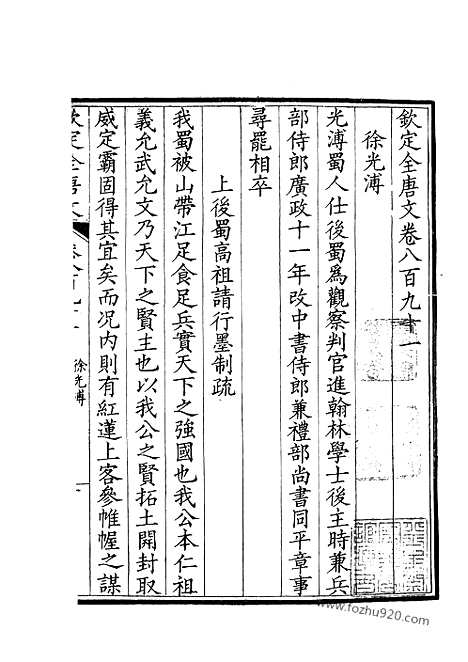 欽定全唐文卷八百九十一
徐光溥
光溥蜀人仕後蜀爲觀察判官進翰林學士後主時兼兵
部侍郎廣政十一年改中書侍郎兼禮部尚書同平章事
尋罷相卒
上後蜀高祖請行墨制疏
我蜀被山帶江足食足兵實天下之強國也我公本仁祖
義允武允文乃天下之賢主也以我公之賢拓土開封取
威定霸固得其宜矣而況內則有紅蓮上客參帷幄之謀
欽定全唐文
徐光溥
一
www.fozhu920.com